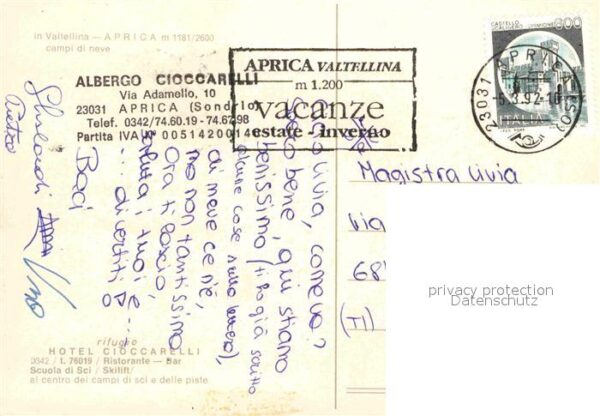 in Valtellina - APRICA m 1181/2600
campi di neve
ALBERGO CIOCCARELLI
Via Adamello, 10
23031 APRICA (Sondrio)
Telef. 0342/74.60.19 - 74.67.98
Partita IVA 0051420014
APRICA VALTELLINA
m 1.200
vacanze
estate - inverno
CASTELLO
600
ITALIA
23031 APRICA (SO)
5.2.92-16
Livia, come va?
bene, qui stiamo
benissimo (ti ho già scritto
alcune cose nella lettera),
di neve ce n'è,
ma non tantissima
Ora ti lascio,
saluta i tuoi e
... divertiti
Baci
Magistra Livia
Via
68
(TI)
privacy protection
Datenschutz
rifugio
HOTEL CIOCCARELLI
0342 / t. 76019 / Ristorante - Bar
Scuola di Sci / Skilift/
al centro dei campi di sci e delle piste